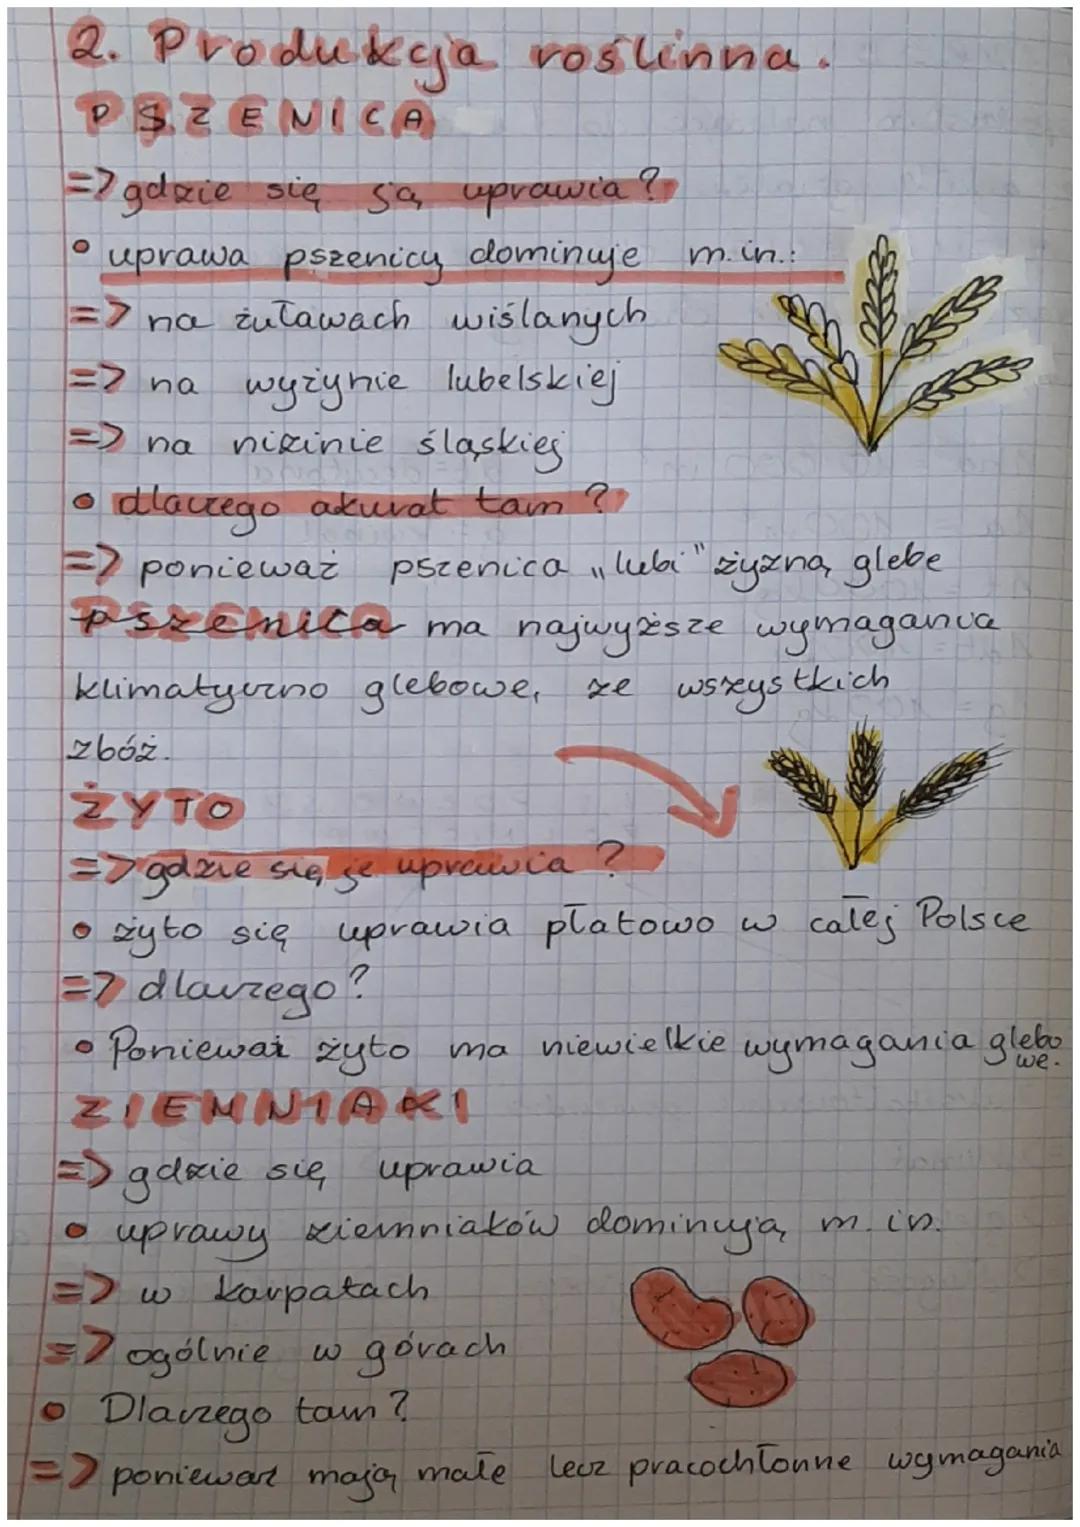 2. Produkcja roślinna.
PSZENICA
=> gdzie się są uprawia?
• uprawa pszenicy dominuje m.in.:
=> na żuławach wiślanych
=> na wyżynie lubelskiej
=> na nizinie śląskiej
• dlaczego akurat tam?
=> ponieważ pszenica „lubi" żyzną glebe
Pszenica ma najwyższe wymagania
klimatyczno glebowe, ze wszystkich
zbóż.
ŻYTO
=> gdzie się je uprawia?
• żyto się uprawia płatowo w całej Polsce
=> dlaczego?
• Ponieważ żyto ma niewielkie wymagania glebo
we.
ZIEMNIAKI
=> gdzie się uprawia
• uprawy ziemniaków dominują m.in.
=> w karpatach
=> ogólnie w górach
• Dlaczego tam?
=> ponieważ mają małe lecz pracochłonne wymagania